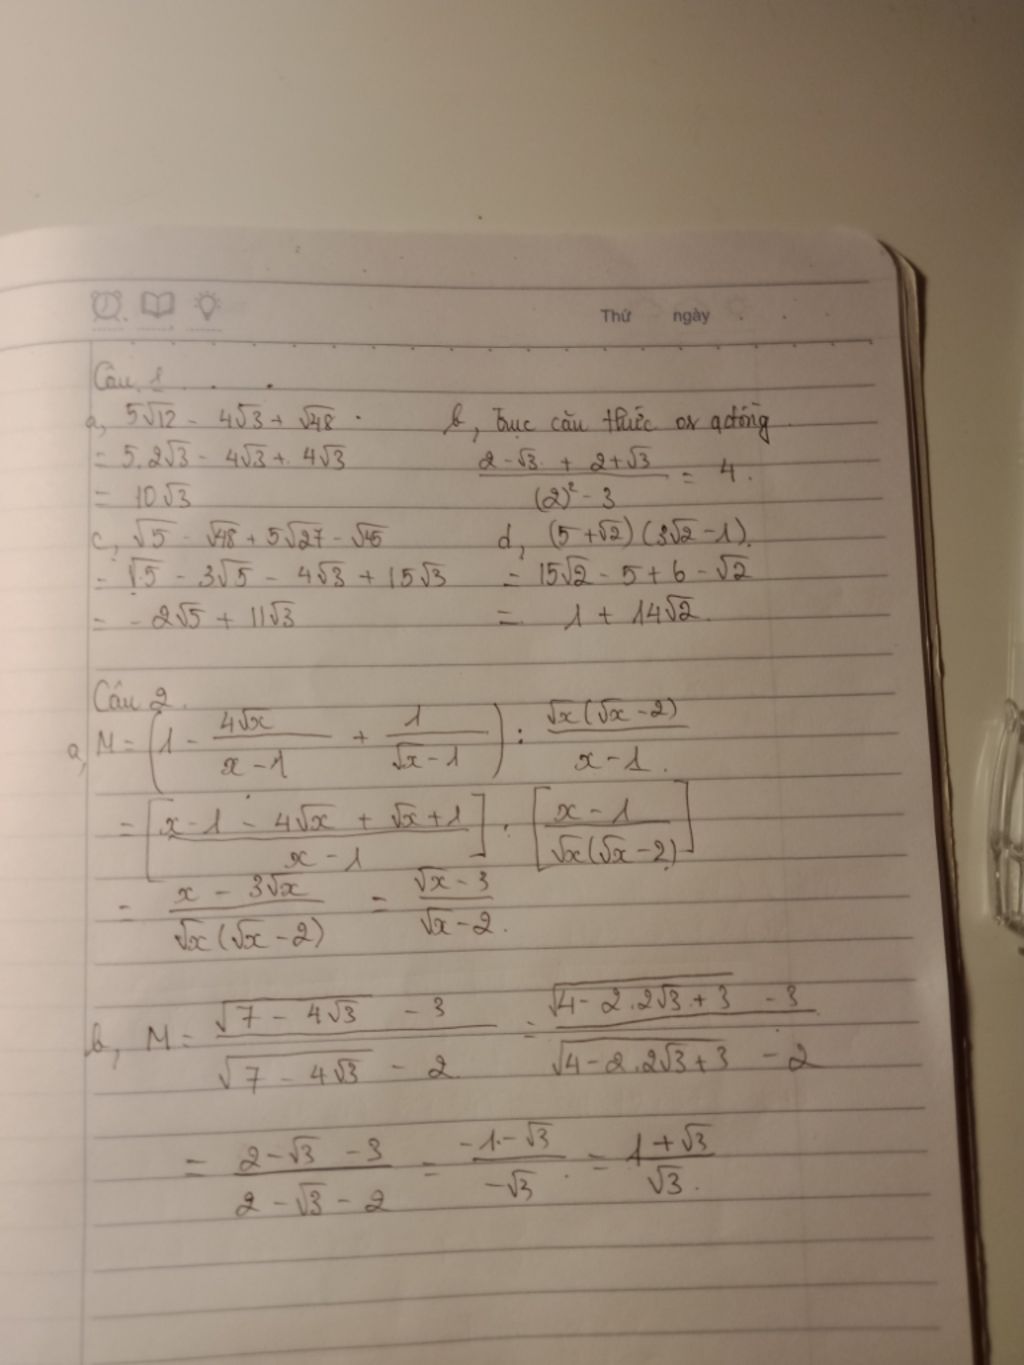 Thứ ngày
Câu 1
a, 5√12 - 4√3 + √48
= 5.2√3 - 4√3 + 4√3
= 10√3
b, Trục căn thức ở
(2-√3 + 2+√3)/((2)² - 3) = 4.
c, √5 - √48 + 5√27 - √45
= √5 - 3√5 - 4√3 + 15√3
= - 2√5 + 11√3
d, (5+√2)(3√2-1).
= 15√2 - 5 + 6 - √2
= 1 + 14√2.
Câu 2.
a, M = (1 - 4√x/(x-1) + 1/(√x-1)) : √x(√x-2)/(x-1).
= [(x-1 - 4√x + √x+1)/(x-1)] . [(x-1)/(√x(√x-2))]
= (x - 3√x)/(√x(√x-2)) = (√x-3)/(√x-2).
b, M = (√(7 - 4√3) - 3)/(√(7 - 4√3) - 2) = (√(4-2.2√3+3) - 3)/(√(4-2.2√3+3) - 2)
= (2-√3 -3)/(2-√3-2) = (-1-√3)/(-√3) = (1+√3)/√3.